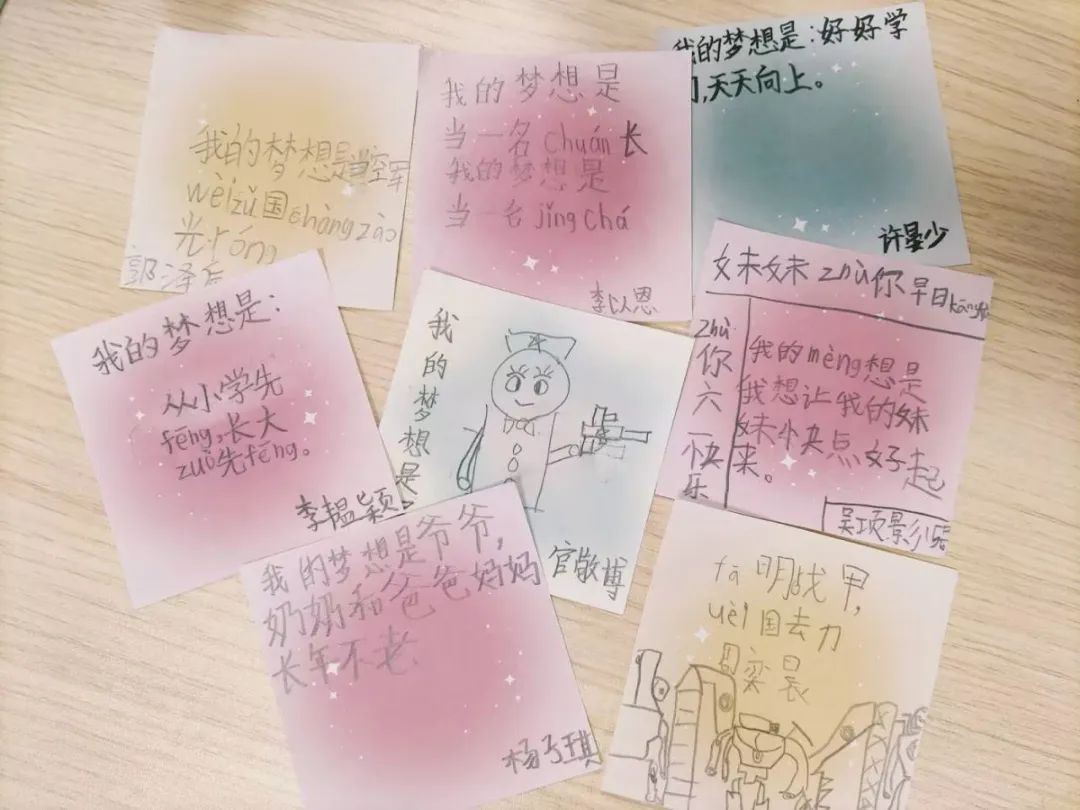 我的梦想是当空军
wèizǔ国chàngzào
光róng
郭泽
我的梦想是
当一名chuán长
我的梦想是
当一名jǐngchá
李以恩
我的梦想是:好好学
天天向上。
许晏少
我的梦想是:
从小学先
fēng,长大
zuò先fēng。
李韫颖
我的梦想是
官敬博
妹妹zhù你早日kāng
zhù你六一快乐
我的mèng想是
我想让我的妹
妹快点好起
来。
吴项影
我的梦想是爷爷,
奶奶和爸爸妈妈
长年不老
杨子琪
fā明战甲,
wèi国去力
周梁晨